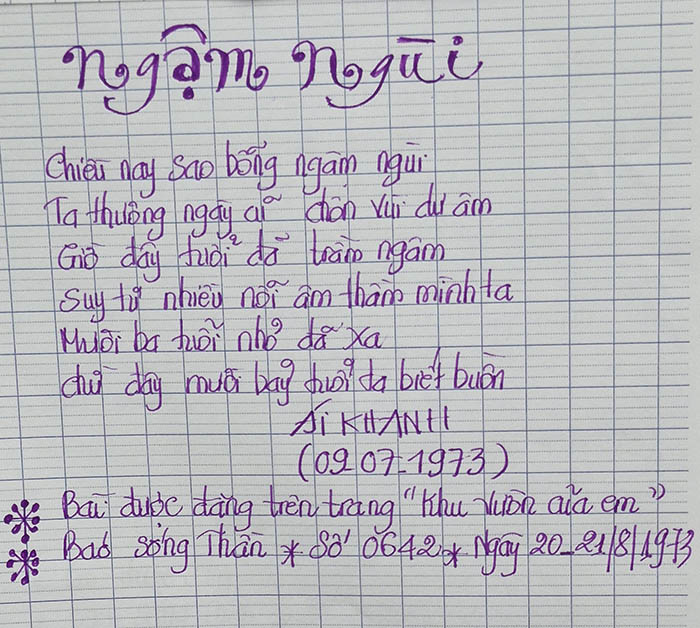 Ngậm Ngùi
Chiều nay sao bỗng ngậm ngùi
Ta thương ngày cũ chôn vùi dư âm
Giờ đây tuổi đã trầm ngâm
Suy tư nhiều nỗi âm thầm mình ta
Mười ba tuổi nhỏ đã xa
đây mười bảy tuổi đã biết buồn
ÁI KHANH
(09.07.1973)
Bài được đăng trên trang "Khu vườn của em"
Báo Sóng Thần * Số 0642 * Ngày 20_21/8/1973